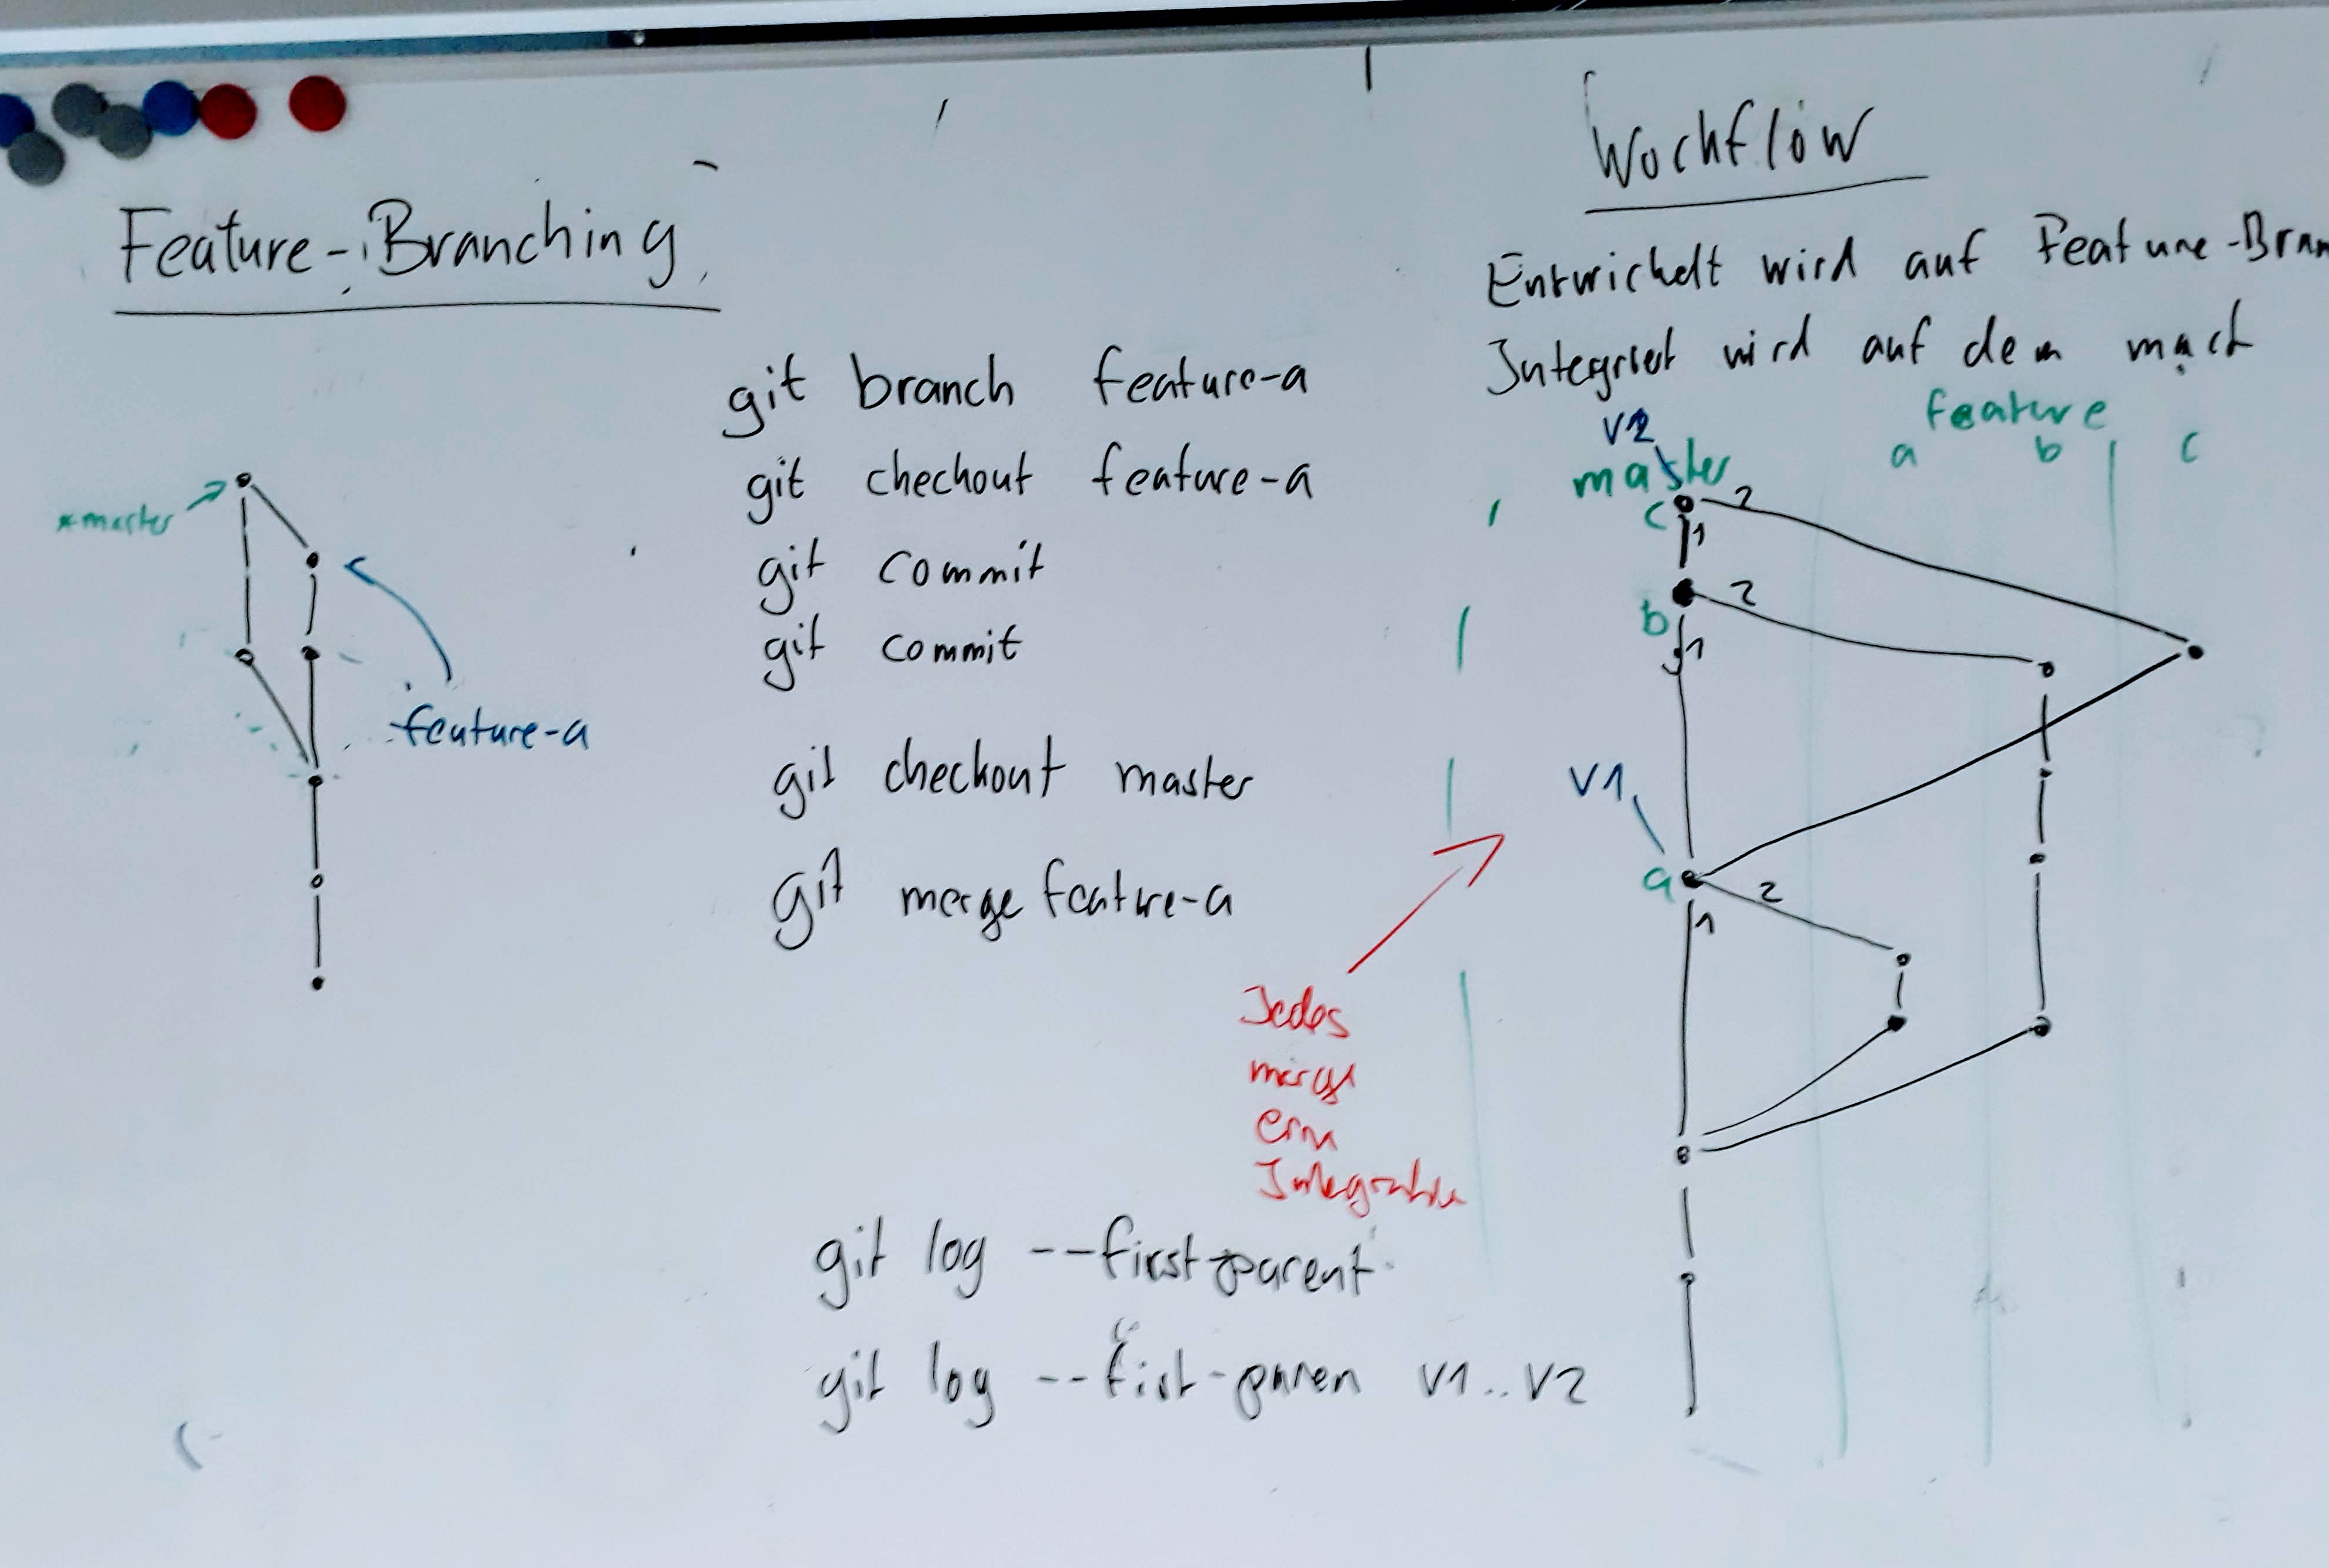 Feature-Branching
*master
feature-a
git branch feature-a
git checkout feature-a
git commit
git commit
git checkout master
git merge feature-a
Jedes
merge
eine
git log --first-parent
git log --fist-paren V1..V2
Workflow
Entwickelt wird auf Feature-Bran
Integriert wird auf dem
V2
master
feature
a b c
c 2
1
b 2
1
V1
a 2
1